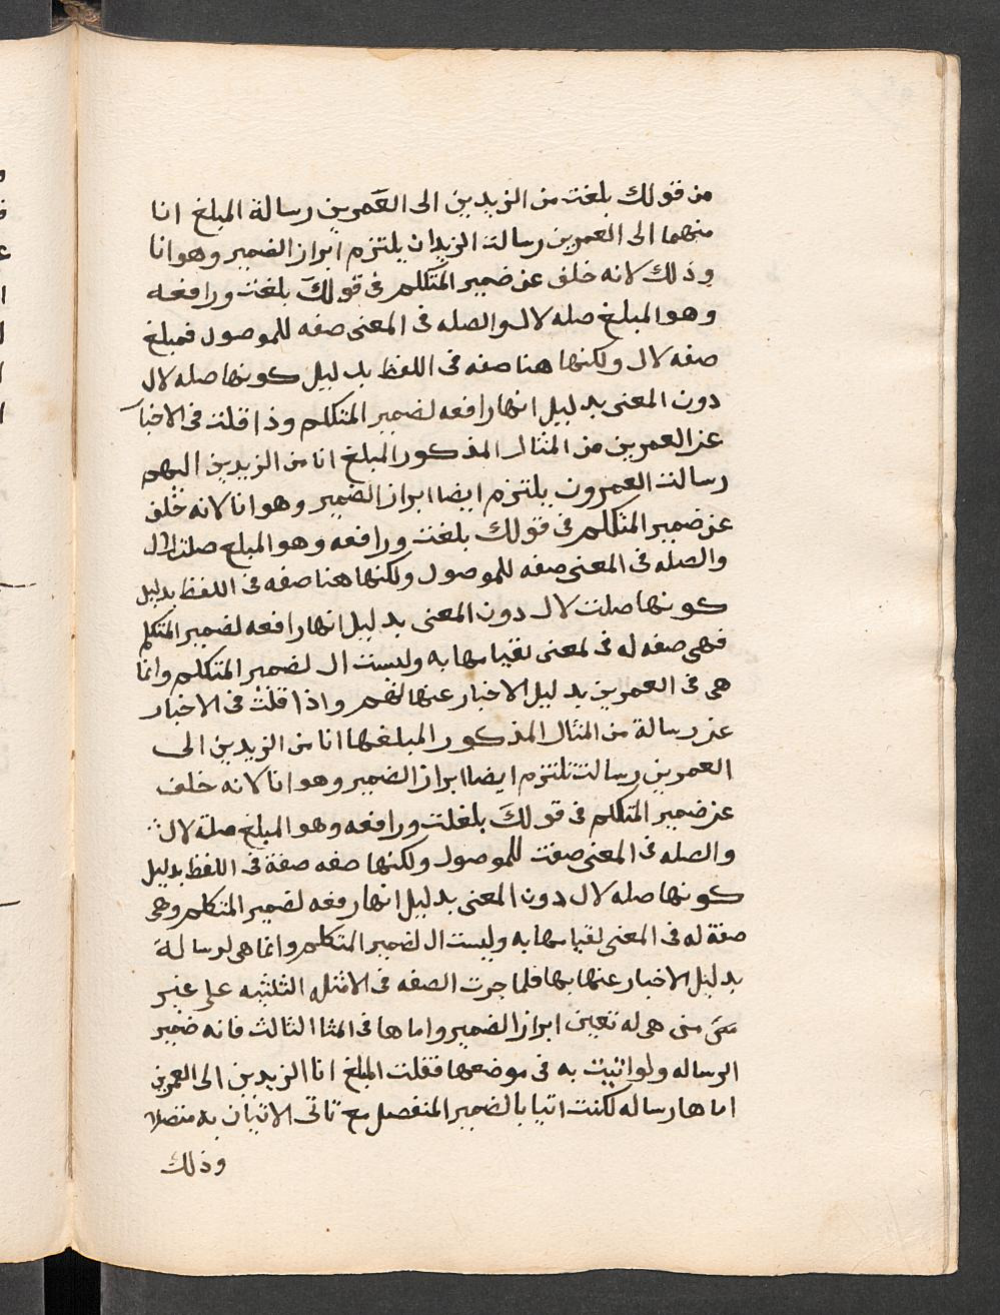 من قولك بلغت من الزيدين الى العَمرين رسالة المبلغ انا
منهما الى العمرين رسالت الزيدان يلتزم ابراز الضمير وهو انا
وذلك لانه خلف عن ضمير المتكلم فى قولكَ بلغت ورافعه
وهو المبلغ صله لال والصله فى المعنى صفه للموصول فمبلغ
صفه لال ولكنها هنا صفه فى اللفظ بدليل كونها صله لال
دون المعنى بدليل انها رافعه لضمير المتكلم وذا قلت فى الاخبا
عن العمرين من المثال المذكور المبلغ انا من الزيدين اليهم
رسالت العمرون يلتزم ايضا ابراز الضمير وهو انا لانه خلف
عن ضمير المتكلم فى قولك بلغت ورافعه وهو المبلغ صلت لال
والصله فى المعنى صفه للموصول ولكنها هنا صفه فى اللفظ بدليل
كونها صلت لال دون المعنى بدليل انها رافعه لضمير المتكلم
فهى صفه له فى لمعنى لقيامها به وليست ال لضمير المتكلم وانما
هى فى العمرين بدليل الاخبار عنها لفهم واذا قلت فى الاخبار
عن رسالة من المثال المذكور المبلغها انا من الزيدين الى
العمرين رسالت تلتزم ايضا ابراز الضمير وهو انا لانه خلف
عن ضمير المتكلم فى قولكَ بلغلت ورافعه وهو المبلغ صلة لال
والصله فى المعنى صفت للموصول ولكنها صفه صفة فى اللفظ بدليل
كونها صله لال دون المعنى بدليل انها رفعه لضمير المتكلم وهى
صفة له فى المعنى لقيامها به وليست ال لضمير المتكلم وانما هى لرسالة
بدليل الاخبار عنها بها فلما جرت الصفه فى الامثله الثلثيه على غير
من هى له تعين ابراز الضمير واما ها فى المثا الثالث فانه ضمير
الرساله ولو اتيت به فى موضعها فقلت المبلغ انا الزيدين الى العمرين
اما ها رساله لكنت اتيا بالضمير المنفصل مع تاتى الاتيان به متصلا
وذلك